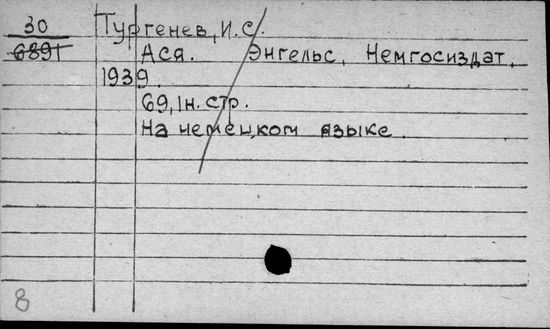 30 Тургенев, И.С.
6891 Ася. Энгельс, Немгосиздат,
1939
69, 1н. стр.
На немецком языке.
8